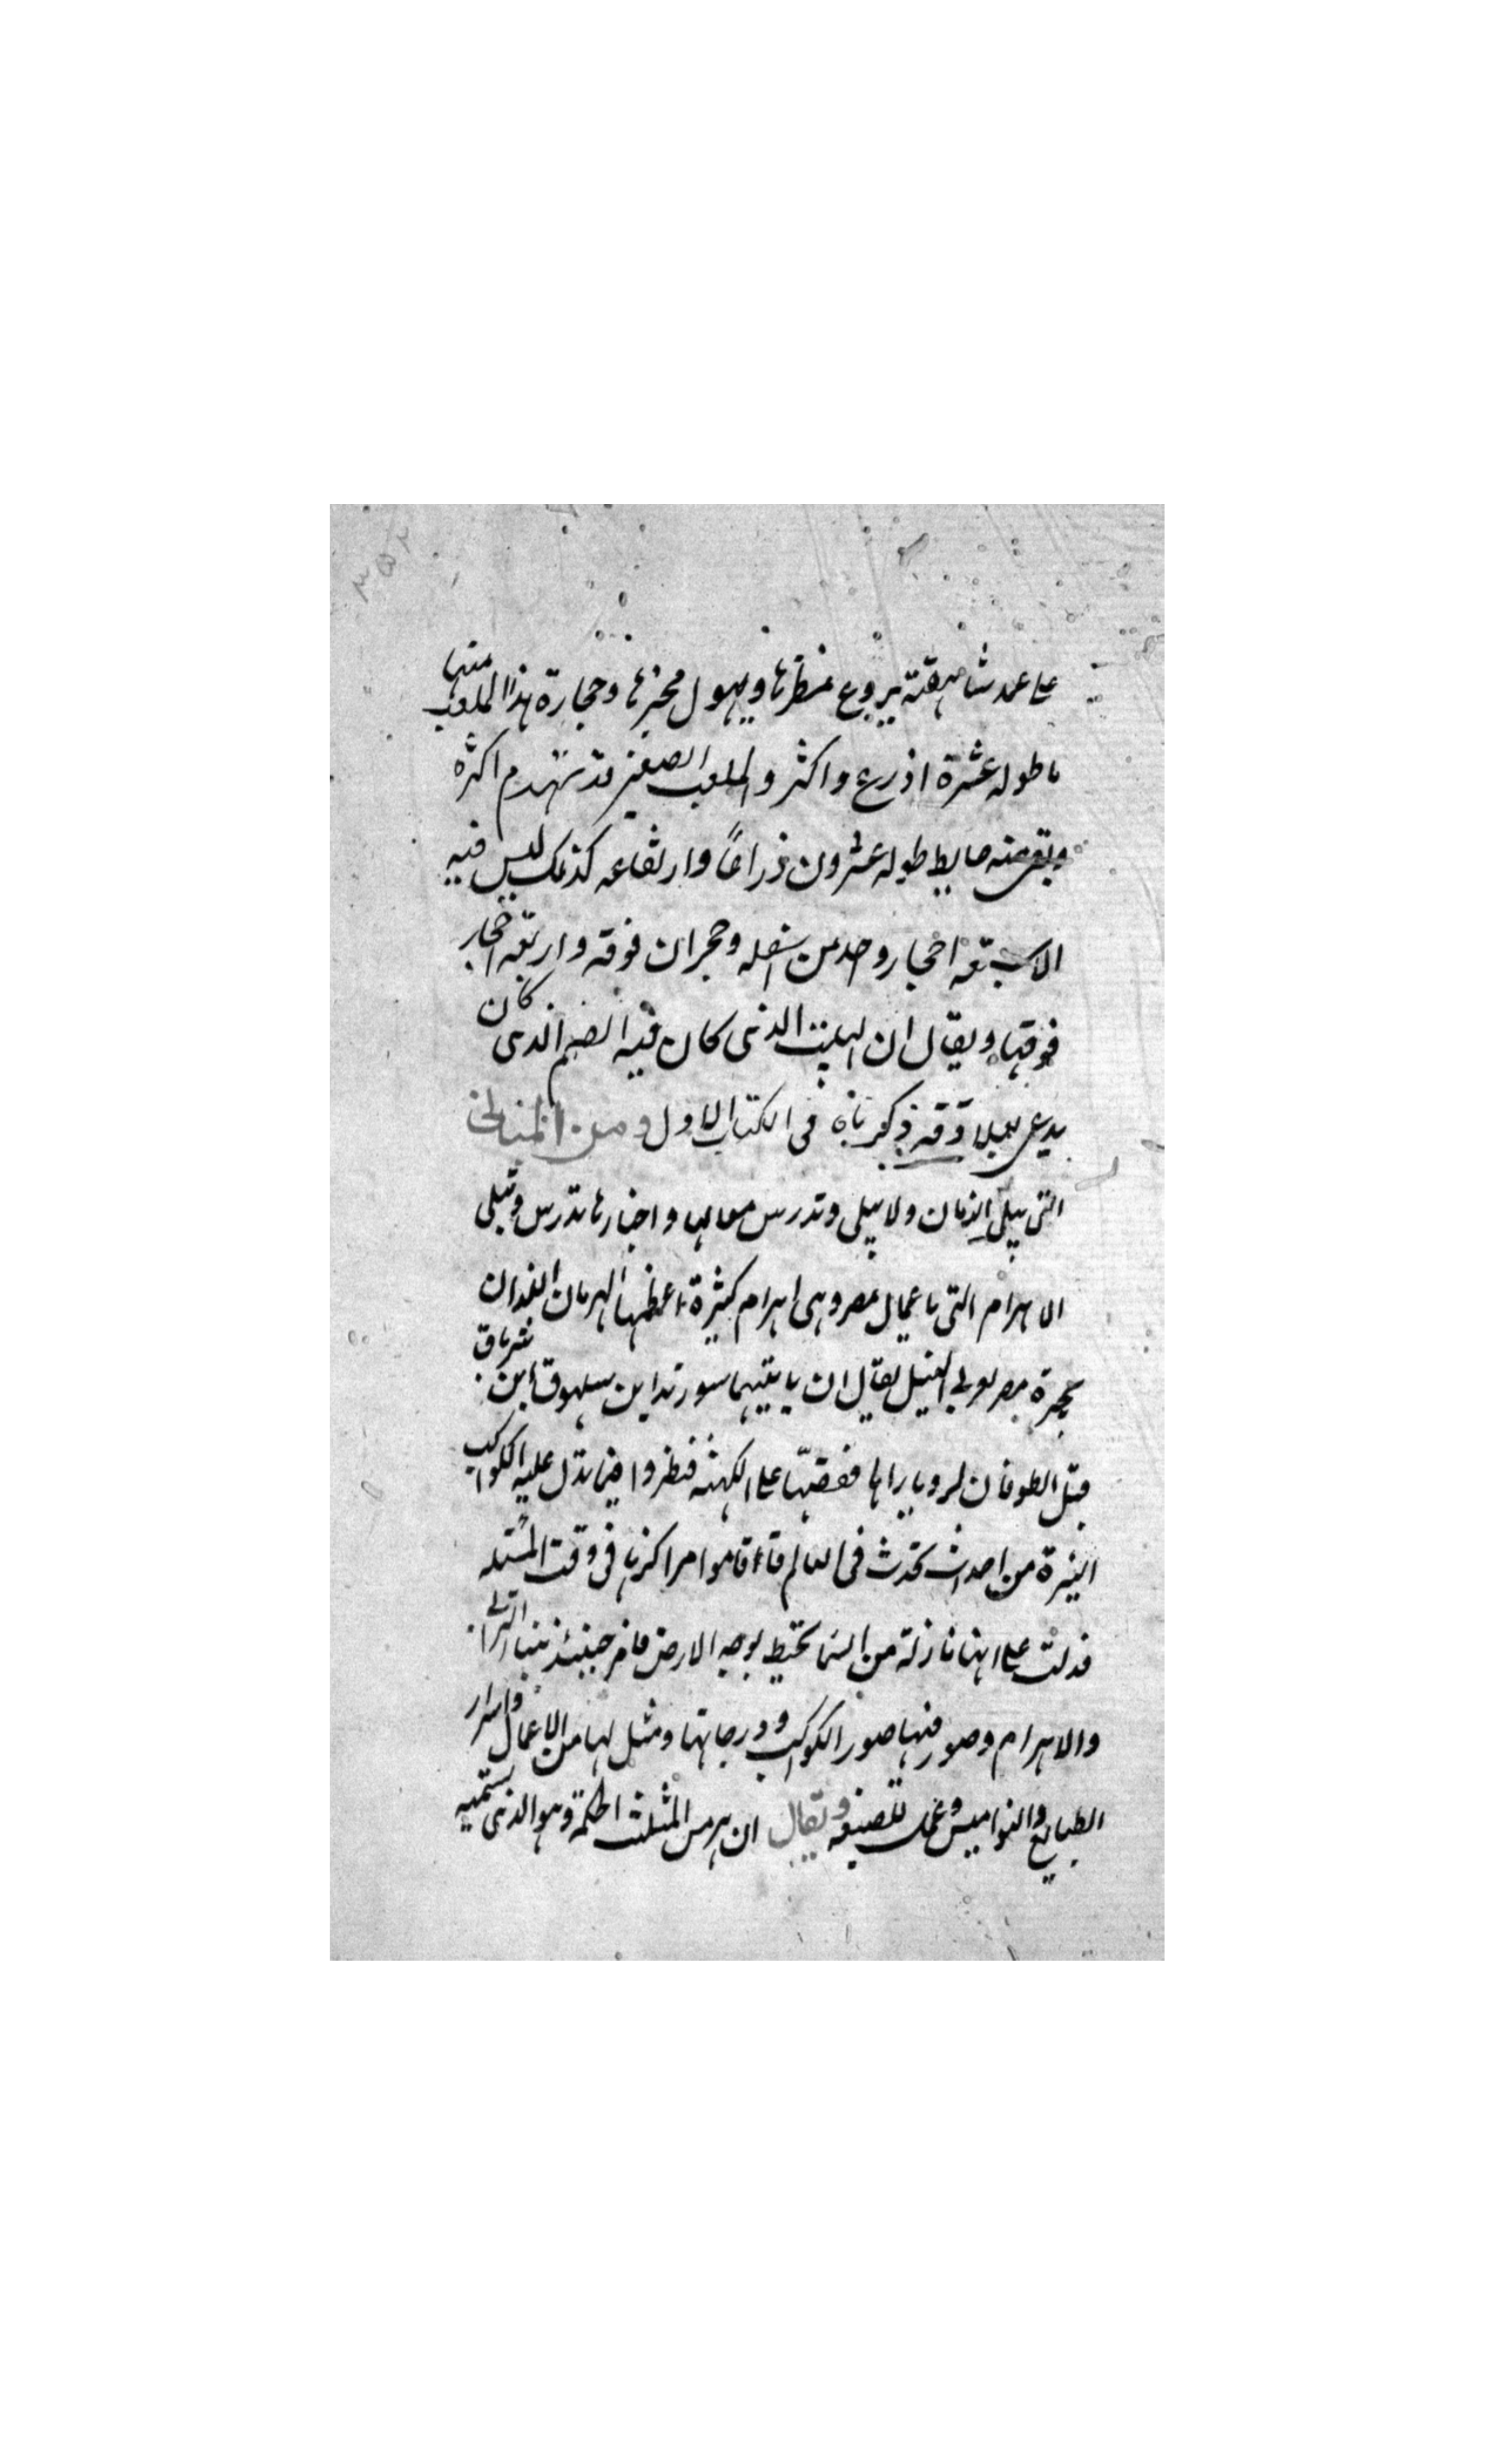 على عمد شاهقة يروع منظرها ويهول مخبرها وحجارة هذا الملعب منها
ما طوله عشرة اذرع واكثر والملعب الصغير قد تهدم اكثره
وبقى منه حايط طوله عشرون ذراعاً وارتفاعه كذلك ليس فيه
الا سبعة احجار واحد من اسفله وحجران فوقه واربعة احجار
فوقها ويقال ان البيت الذى كان فيه الصنم الذى كان
يدعى بعلا وقد ذكرناه فى الكتاب الاول ومن المبانى
التى يبلى الزمان ولا تبلى وتدرس معالمه واخبارها لا تدرس ولا تبلى
الاهرام التى باعمال مصر وهى اهرام كثيرة اعظمها الهرمان اللذان
بجيزة مصر غربى النيل يقال ان بانيهما سوريد ابن سهلوق ابن شرياق
قبل الطوفان لرويا رآها فقصها على الكهنة فنظروا فيما تدل عليه الكواكب
النيرة من احداث تحدث فى العالم واقاموا مراكزها فى وقت المسئلة
فدلت على انها نازلة من السما تحيط بوجه الارض فامر حينئذ ببنا البرابى
والاهرام وصور فيها صور الكواكب ودرجاتها ومثل لها من الاعمال واسرار
الطبايع والنواميس وعمل الصنعة ويقال ان هرمس المثلث الحكمة وهو الذى تسميه